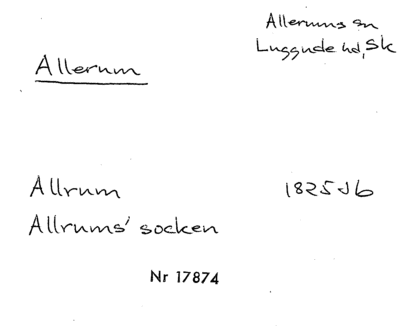 Allerums sn
Luggude hd, Sk
Allerum
Allrum 1825 Jb
Allrums' socken
Nr 17874